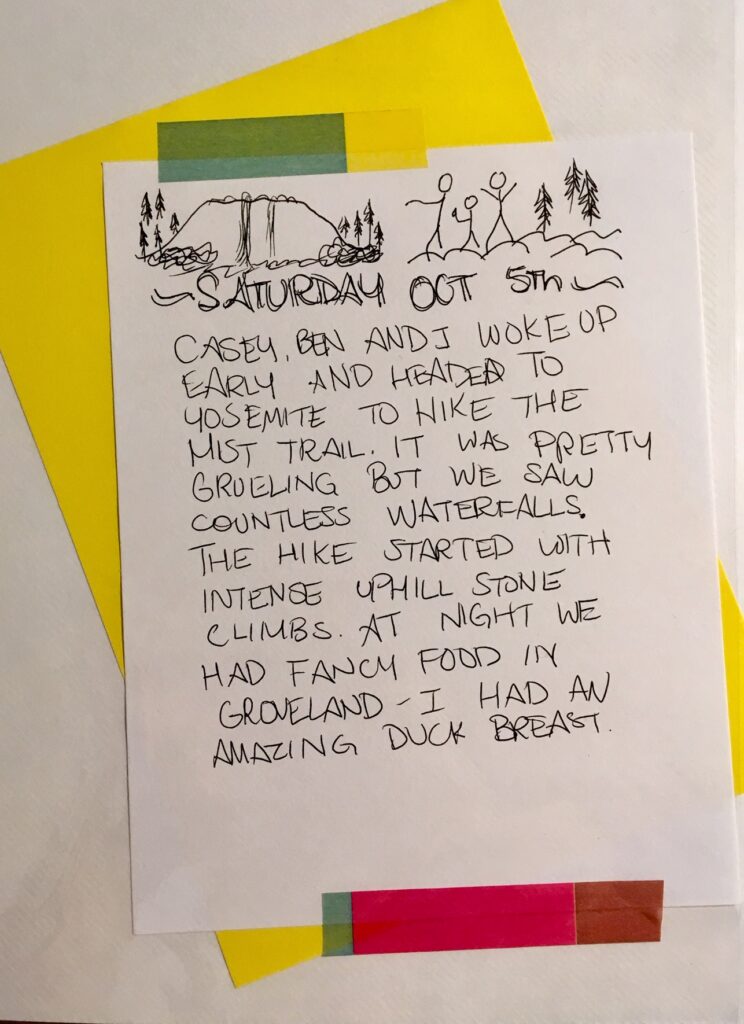 ~SATURDAY OCT 5th~
CASEY, BEN AND I WOKE UP
EARLY AND HEADED TO
YOSEMITE TO HIKE THE
MIST TRAIL. IT WAS PRETTY
GRUELING BUT WE SAW
COUNTLESS WATERFALLS.
THE HIKE STARTED WITH
INTENSE UPHILL STONE
CLIMBS. AT NIGHT WE
HAD FANCY FOOD IN
GROVELAND - I HAD AN
AMAZING DUCK BREAST.